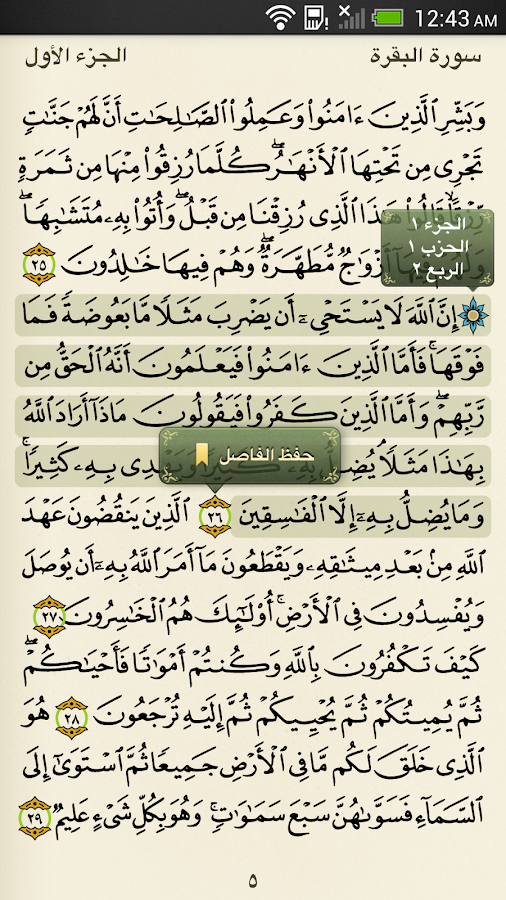 12:43 AM
سورة البقرة
الجزء الأول
وَبَشِّرِ ٱلَّذِينَ ءَامَنُوا۟ وَعَمِلُوا۟ ٱلصَّٰلِحَٰتِ أَنَّ لَهُمْ جَنَّٰتٍ
تَجْرِى مِن تَحْتِهَا ٱلْأَنْهَٰرُ ۖ كُلَّمَا رُزِقُوا۟ مِنْهَا مِن ثَمَرَةٍ
رِّزْقًا ۙ قَالُوا۟ هَٰذَا ٱلَّذِى رُزِقْنَا مِن قَبْلُ ۖ وَأُتُوا۟ بِهِۦ مُتَشَٰبِهًا ۖ
أَزْوَٰجٌ مُّطَهَّرَةٌ ۖ وَهُمْ فِيهَا خَٰلِدُونَ ٢٥
الجزء ١
الحزب ١
الربع ٢
إِنَّ ٱللَّهَ لَا يَسْتَحْىِۦٓ أَن يَضْرِبَ مَثَلًا مَّا بَعُوضَةً فَمَا
فَوْقَهَا ۚ فَأَمَّا ٱلَّذِينَ ءَامَنُوا۟ فَيَعْلَمُونَ أَنَّهُ ٱلْحَقُّ مِن
رَّبِّهِمْ ۖ وَأَمَّا ٱلَّذِينَ كَفَرُوا۟ فَيَقُولُونَ مَاذَآ أَرَادَ ٱللَّهُ
بِهَٰذَا مَثَلًا ۘ يُضِلُّ بِهِۦ كَثِيرًا وَيَهْدِى بِهِۦ كَثِيرًا ۚ
حفظ الفاصل
وَمَا يُضِلُّ بِهِۦٓ إِلَّا ٱلْفَٰسِقِينَ ٢٦ ٱلَّذِينَ يَنقُضُونَ عَهْدَ
ٱللَّهِ مِنۢ بَعْدِ مِيثَٰقِهِۦ وَيَقْطَعُونَ مَآ أَمَرَ ٱللَّهُ بِهِۦٓ أَن يُوصَلَ
وَيُفْسِدُونَ فِى ٱلْأَرْضِ ۚ أُو۟لَٰٓئِكَ هُمُ ٱلْخَٰسِرُونَ ٢٧
كَيْفَ تَكْفُرُونَ بِٱللَّهِ وَكُنتُمْ أَمْوَٰتًا فَأَحْيَٰكُمْ ۖ
ثُمَّ يُمِيتُكُمْ ثُمَّ يُحْيِيكُمْ ثُمَّ إِلَيْهِ تُرْجَعُونَ ٢٨ هُوَ
ٱلَّذِى خَلَقَ لَكُم مَّا فِى ٱلْأَرْضِ جَمِيعًا ثُمَّ ٱسْتَوَىٰٓ إِلَى
ٱلسَّمَآءِ فَسَوَّىٰهُنَّ سَبْعَ سَمَٰوَٰتٍ ۚ وَهُوَ بِكُلِّ شَىْءٍ عَلِيمٌ ٢٩
٥